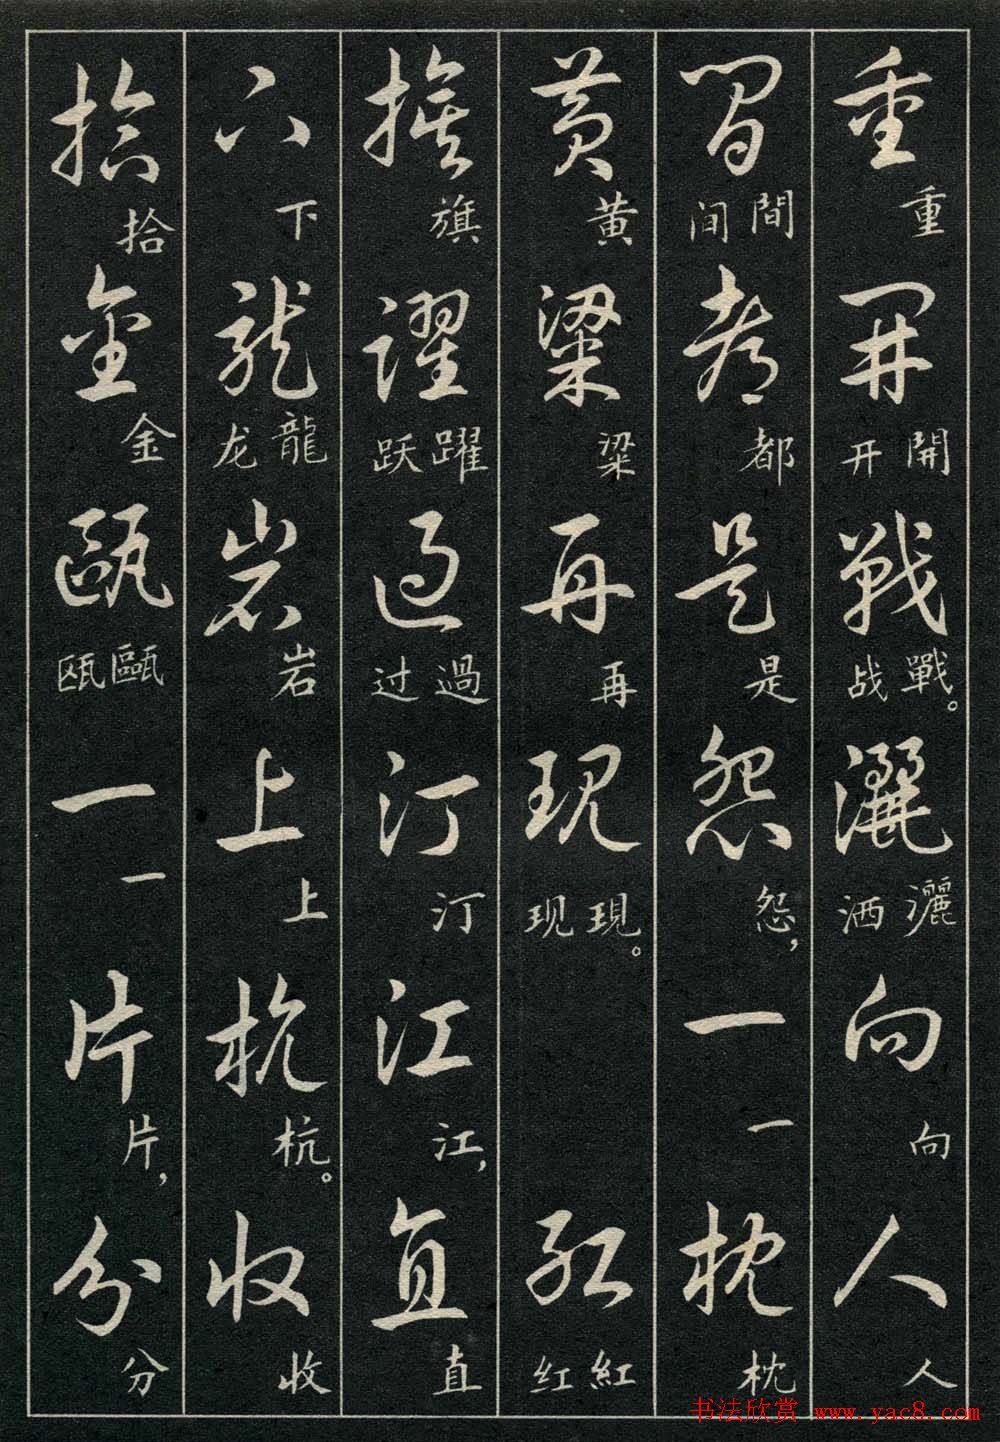 重開戰灑向人
重 開开 戰战。 灑洒 向 人
間都是怨一枕
間间 都 是 怨， 一 枕
黄粱再現紅
黄 粱 再 現现。 紅红
旗躍過汀江直
旗 躍跃 過过 汀 江， 直
下龍岩上杭收
下 龍龙 岩 上 杭。 收
拾金甌一片分
拾 金 甌瓯 一 片， 分
书法欣赏 www.yac8.com